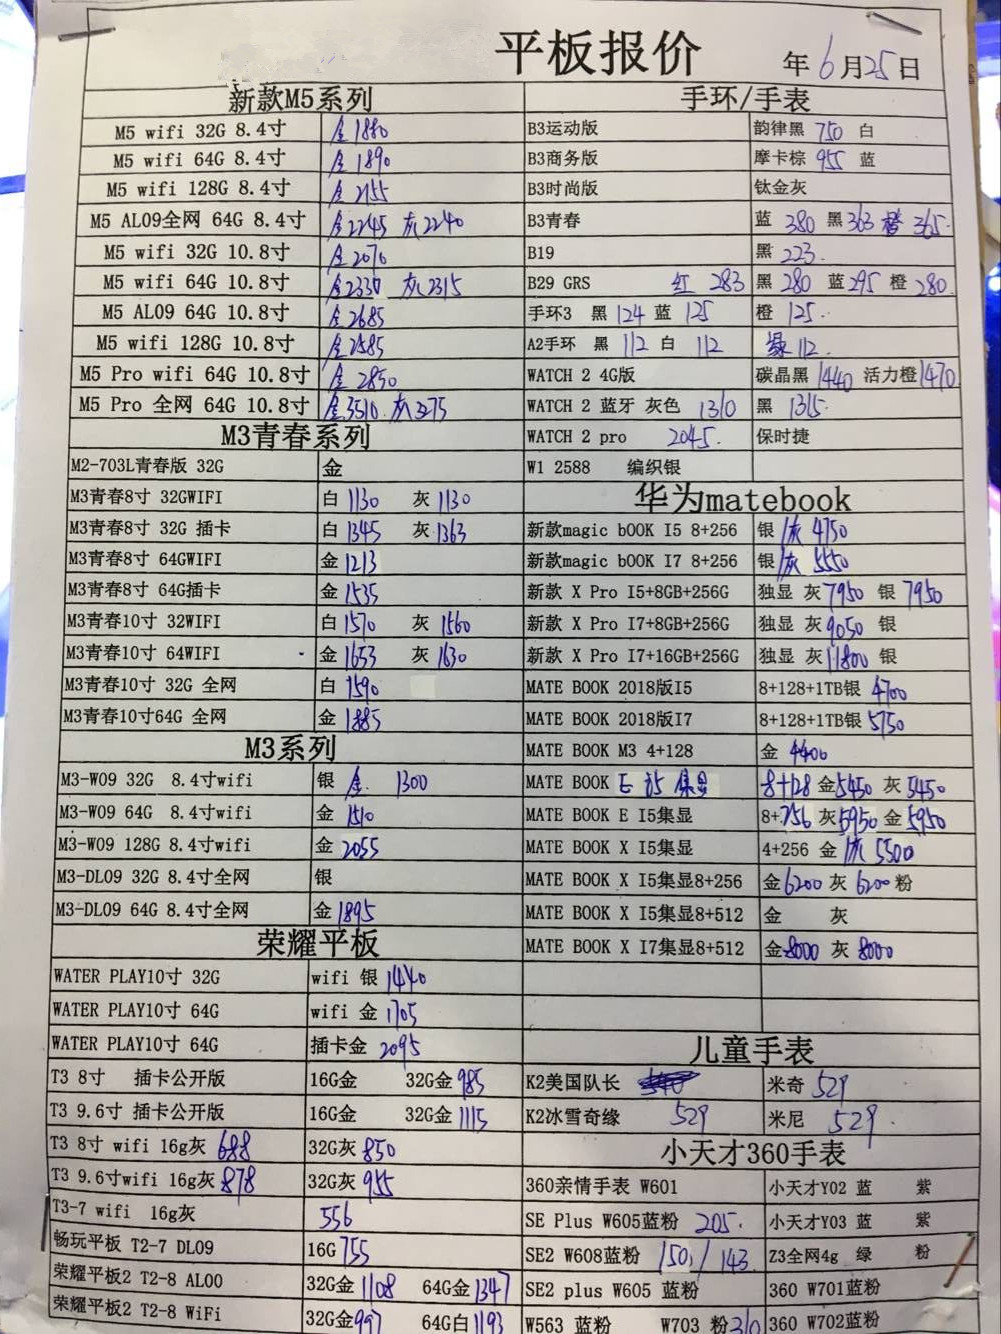 平板报价
年6月25日
新款M5系列
M5 wifi 32G 8.4寸 金1880
M5 wifi 64G 8.4寸 金1890
M5 wifi 128G 8.4寸 金2155
M5 AL09全网 64G 8.4寸 金2245 灰2240
M5 wifi 32G 10.8寸 金2070
M5 wifi 64G 10.8寸 金2330 灰2315
M5 AL09 64G 10.8寸 金2685
M5 wifi 128G 10.8寸 金2585
M5 Pro wifi 64G 10.8寸 金2850
M5 Pro 全网 64G 10.8寸 金3510 灰3275
M3青春系列
M2-703L青春版 32G 金
M3青春8寸 32GWIFI 白1130 灰1130
M3青春8寸 32G 插卡 白1345 灰1363
M3青春8寸 64GWIFI 金1213
M3青春8寸 64G插卡 金1535
M3青春10寸 32WIFI 白1570 灰1560
M3青春10寸 64WIFI 金1653 灰1630
M3青春10寸 32G 全网 白1590
M3青春10寸64G 全网 金1885
M3系列
M3-W09 32G 8.4寸wifi 银 金 1300
M3-W09 64G 8.4寸wifi 金1510
M3-W09 128G 8.4寸wifi 金2055
M3-DL09 32G 8.4寸全网 银
M3-DL09 64G 8.4寸全网 金1895
荣耀平板
WATER PLAY10寸 32G wifi 银1440
WATER PLAY10寸 64G wifi 金1705
WATER PLAY10寸 64G 插卡金 2095
T3 8寸 插卡公开版 16G金 32G金985
T3 9.6寸 插卡公开版 16G金 32G金1115
T3 8寸 wifi 16g灰 688 32G灰 850
T3 9.6寸wifi 16g灰 878 32G灰 955
T3-7 wifi 16g灰 556
畅玩平板 T2-7 DL09 16G 755
荣耀平板2 T2-8 AL00 32G金1108 64G金1347
荣耀平板2 T2-8 WiFi 32G金997 64G白1193
手环/手表
B3运动版 韵律黑 750 白
B3商务版 摩卡棕 955 蓝
B3时尚版 钛金灰
B3青春 蓝 380 黑363 橙365.
B19 黑 223.
B29 GRS 红 283 黑 280 蓝295 橙 280.
手环3 黑 124 蓝 125 橙 125.
A2手环 黑 112 白 112 绿112.
WATCH 2 4G版 碳晶黑 1440 活力橙1470
WATCH 2 蓝牙 灰色 1310 黑 1315.
WATCH 2 pro 2045. 保时捷
W1 2588 编织银
华为matebook
新款magic bOOK I5 8+256 银/灰 4750
新款magic bOOK I7 8+256 银/灰 5550
新款 X Pro I5+8GB+256G 独显 灰7950 银 7950
新款 X Pro I7+8GB+256G 独显 灰9050 银
新款 X Pro I7+16GB+256G 独显 灰11800 银
MATE BOOK 2018版I5 8+128+1TB银 4700
MATE BOOK 2018版I7 8+128+1TB银 5750
MATE BOOK M3 4+128 金 4400
MATE BOOK E i5 集显 8+128 金5450 灰 5450
MATE BOOK E I5集显 8+256 灰5950 金 5950
MATE BOOK X I5集显 4+256 金/灰 5500
MATE BOOK X I5集显8+256 金6200 灰 6200 粉
MATE BOOK X I5集显8+512 金 灰
MATE BOOK X I7集显8+512 金8000 灰 8000
儿童手表
K2美国队长 米奇 529
K2冰雪奇缘 529 米尼 529.
小天才360手表
360亲情手表 W601 小天才Y02 蓝 紫
SE Plus W605蓝粉 205. 小天才Y03 蓝 紫
SE2 W608蓝粉 150/143. Z3全网4g 绿 粉
SE2 plus W605 蓝粉 360 W701蓝粉
W563 蓝粉 W703 粉310 360 W702蓝粉